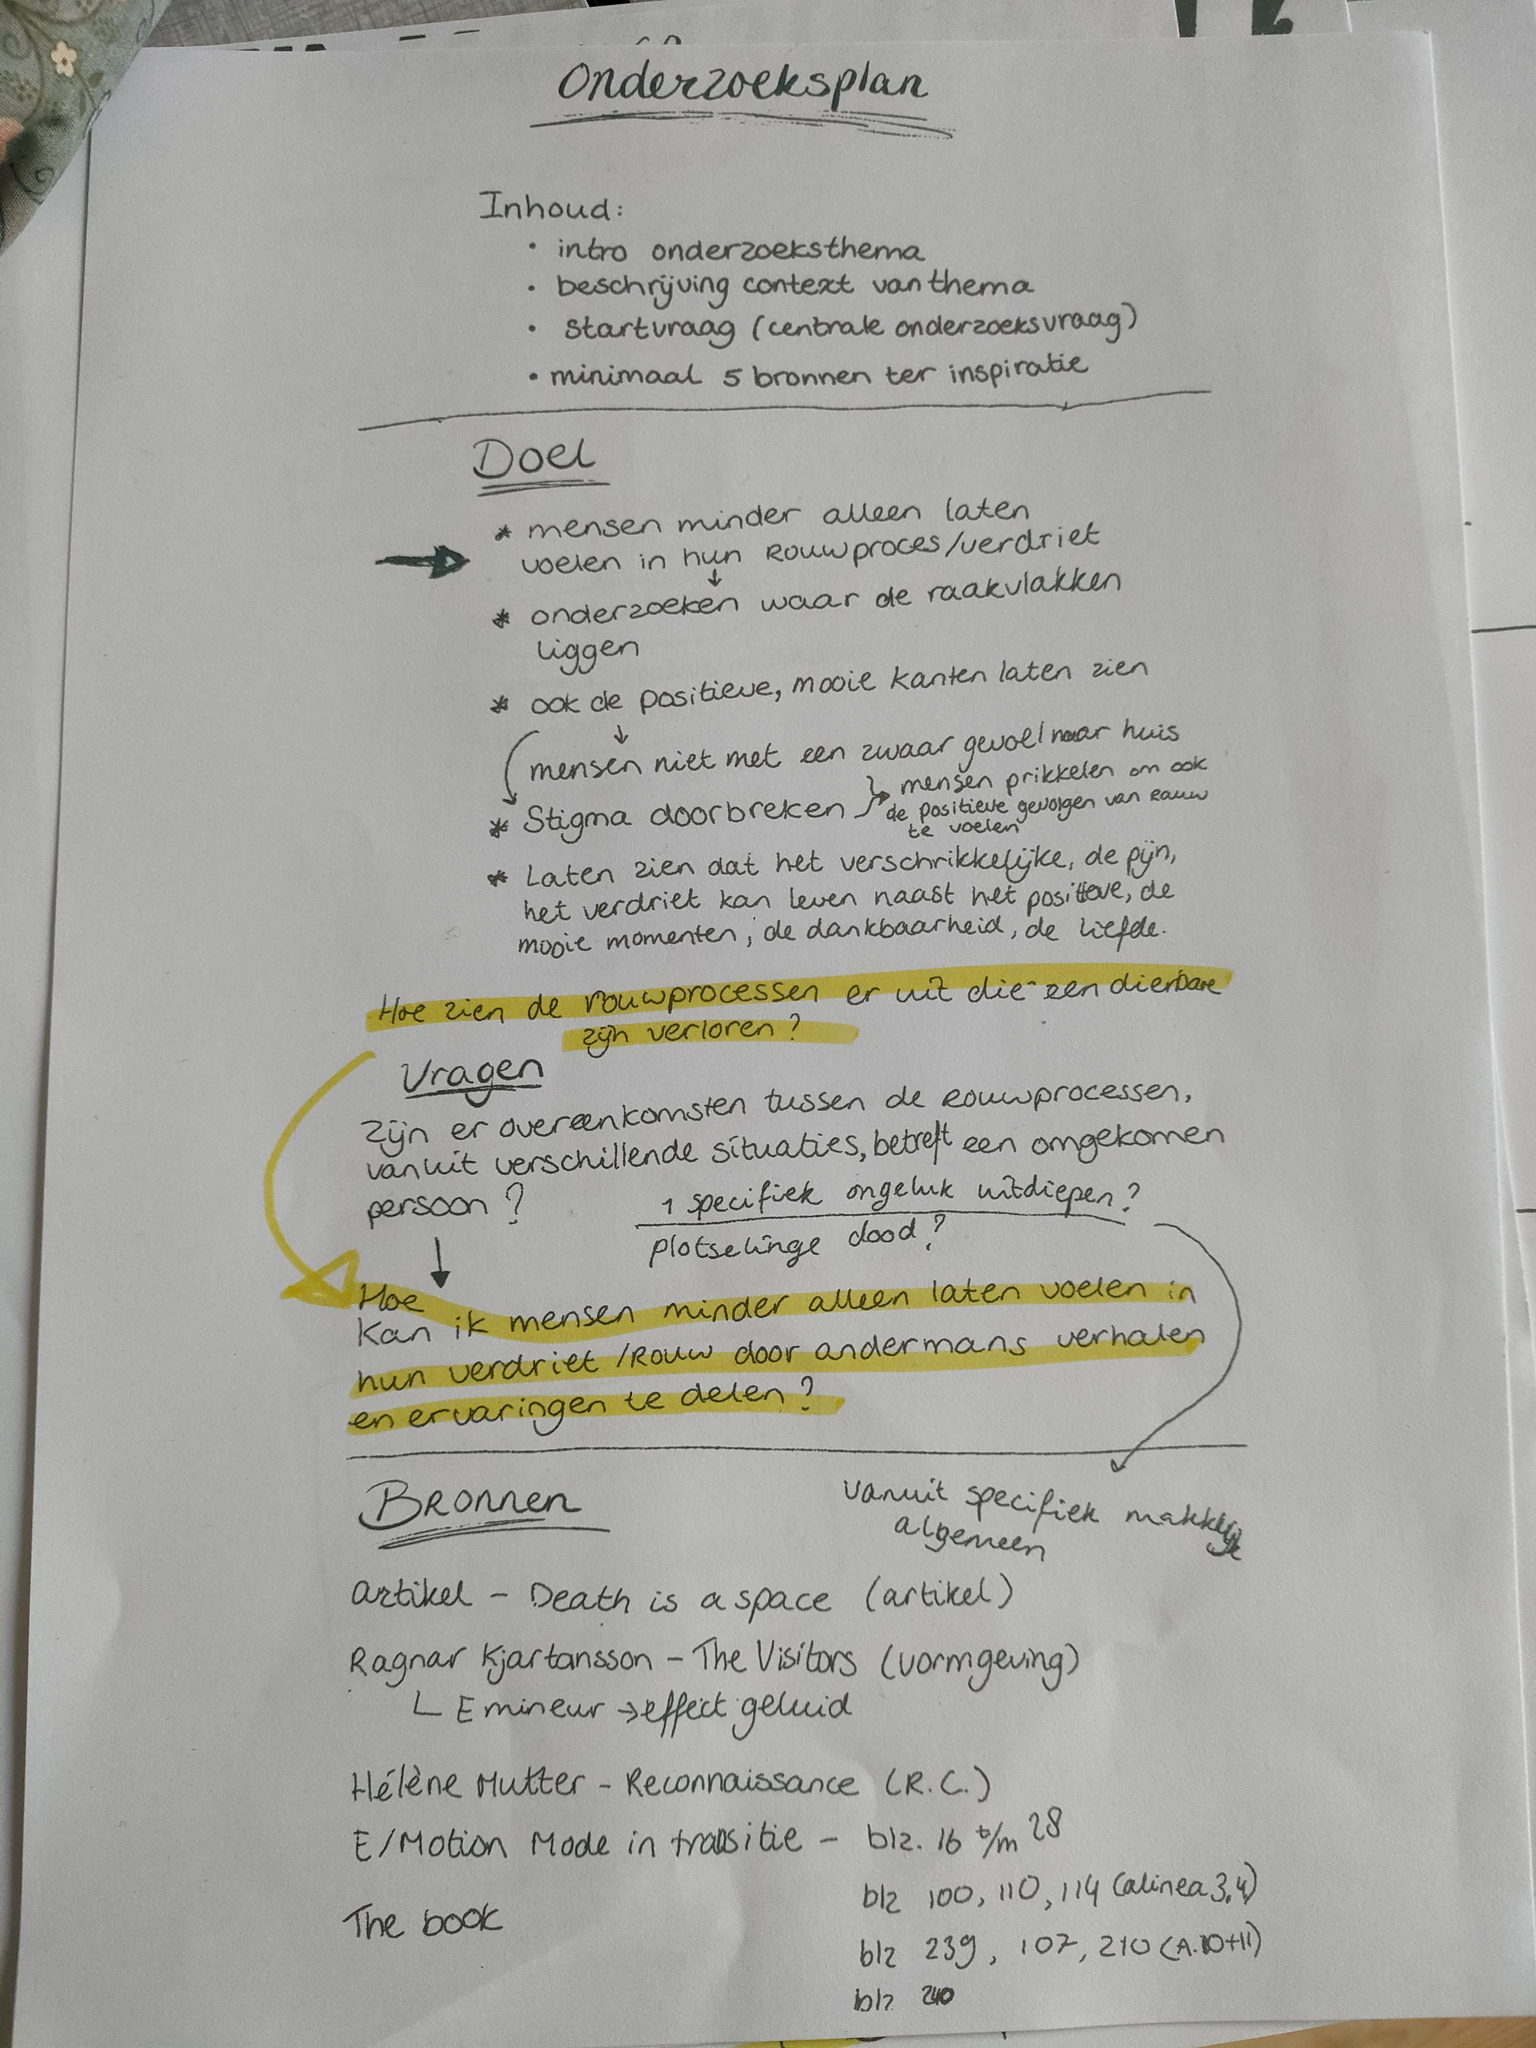 Onderzoeksplan
Inhoud:
• intro onderzoeksthema
• beschrijving context van thema
• startvraag (centrale onderzoeksvraag)
• minimaal 5 bronnen ter inspiratie
Doel
* mensen minder alleen laten
voelen in hun Rouwproces/verdriet
↓
* onderzoeken waar de raakvlakken
liggen
* ook de positieve, mooie kanten laten zien
↓
mensen niet met een zwaar gevoel naar huis
* Stigma doorbreken } → mensen prikkelen om ook
de positieve gevolgen van Rouw
te voelen
* Laten zien dat het verschrikkelijke, de pijn,
het verdriet kan leven naast het positieve, de
mooie momenten, de dankbaarheid, de liefde.
Hoe zien de rouwprocessen er uit die een dierbare
zijn verloren?
Vragen
Zijn er overeenkomsten tussen de rouwprocessen,
vanuit verschillende situaties, betreft een omgekomen
persoon?
1 specifiek ongeluk uitdiepen?
plotselinge dood?
Hoe
kan ik mensen minder alleen laten voelen in
hun verdriet /Rouw door andermans verhalen
en ervaringen te delen?
Bronnen
vanuit specifiek
algemeen
artikel – Death is a space (artikel)
Ragnar Kjartansson – The Visitors (vormgeving)
E mineur → effect geluid
Hélène Mutter – Reconnaissance (R.C.)
E/Motion Mode in transitie – blz. 16 t/m 28
blz 100, 110, 114 (alinea 3,4)
The book
blz 239, 107, 210 (A.10+11)
blz 240